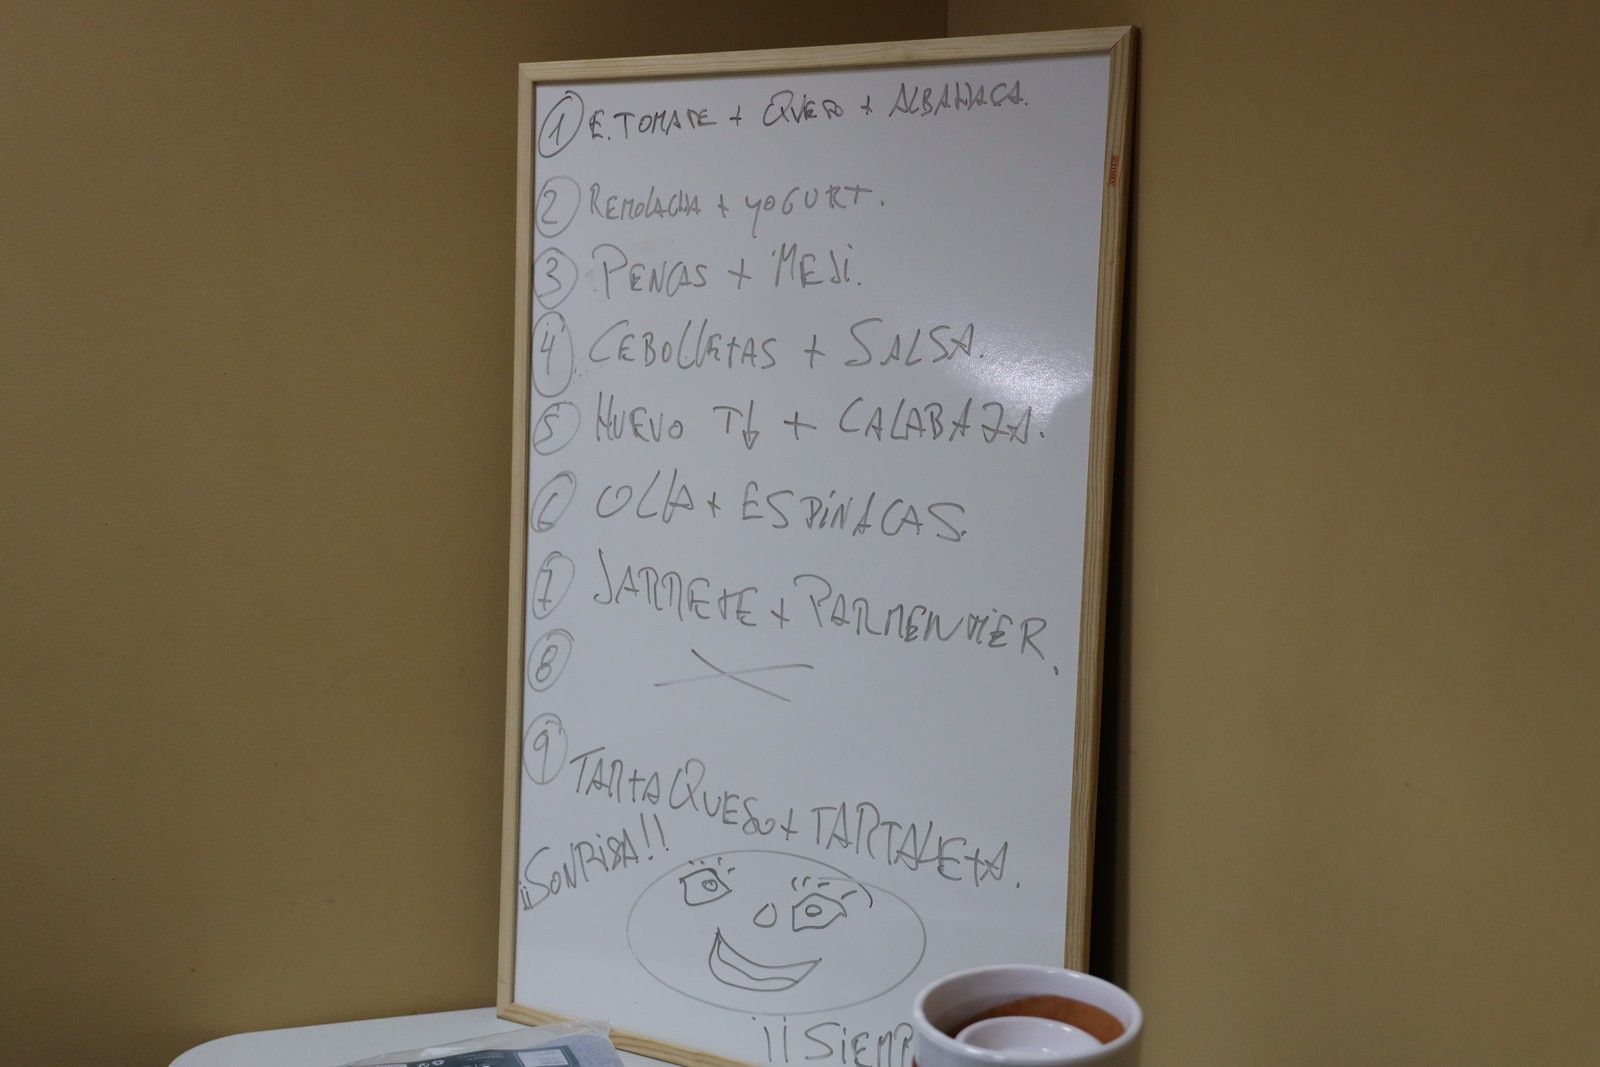 1 E. TOMATE + QUESO + ALBAHACA.
2 REMOLACHA + YOGURT.
3 PENCAS + MEJI.
4 CEBOLLETAS + SALSA.
5 HUEVO T↓ + CALABAZA.
6 OLLA + ESPINACAS.
7 JARRETE + PARMENTIER.
8
9 TARTA QUESO + TARTALETA.
¡¡SONRISA!!
¡¡SIEMP